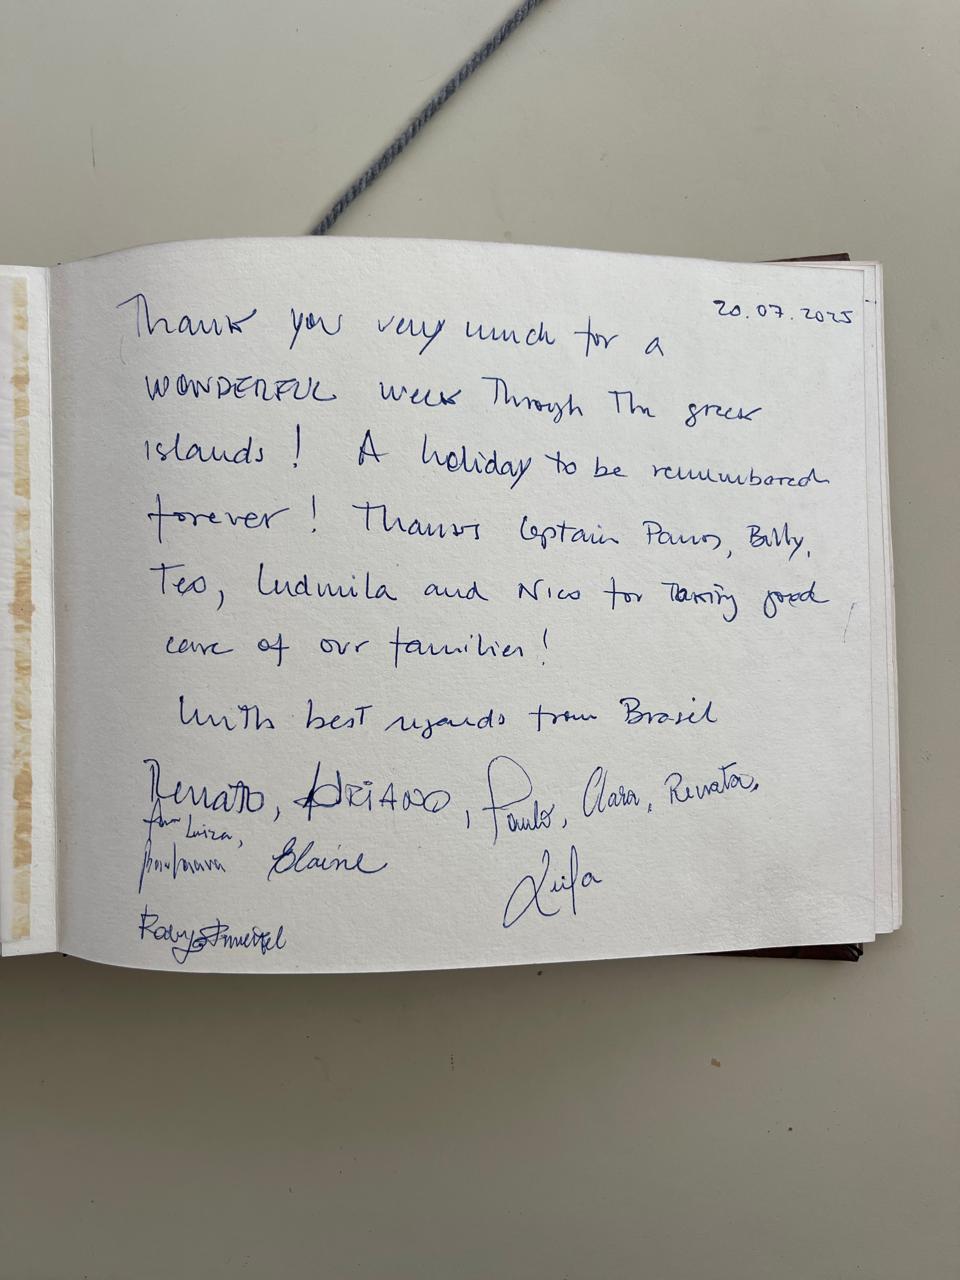 20.07.2025
Thank you very much for a
WONDERFUL week Through The greek
islands! A holiday to be remembered
forever! Thanks Captain Panos, Billy,
Teo, Ludmila and Nico for Taking good
care of our families!
With best regards from Brasil
Renato, ADRIANO, Paulo, Clara, Renata,
Luiza,
Elaine